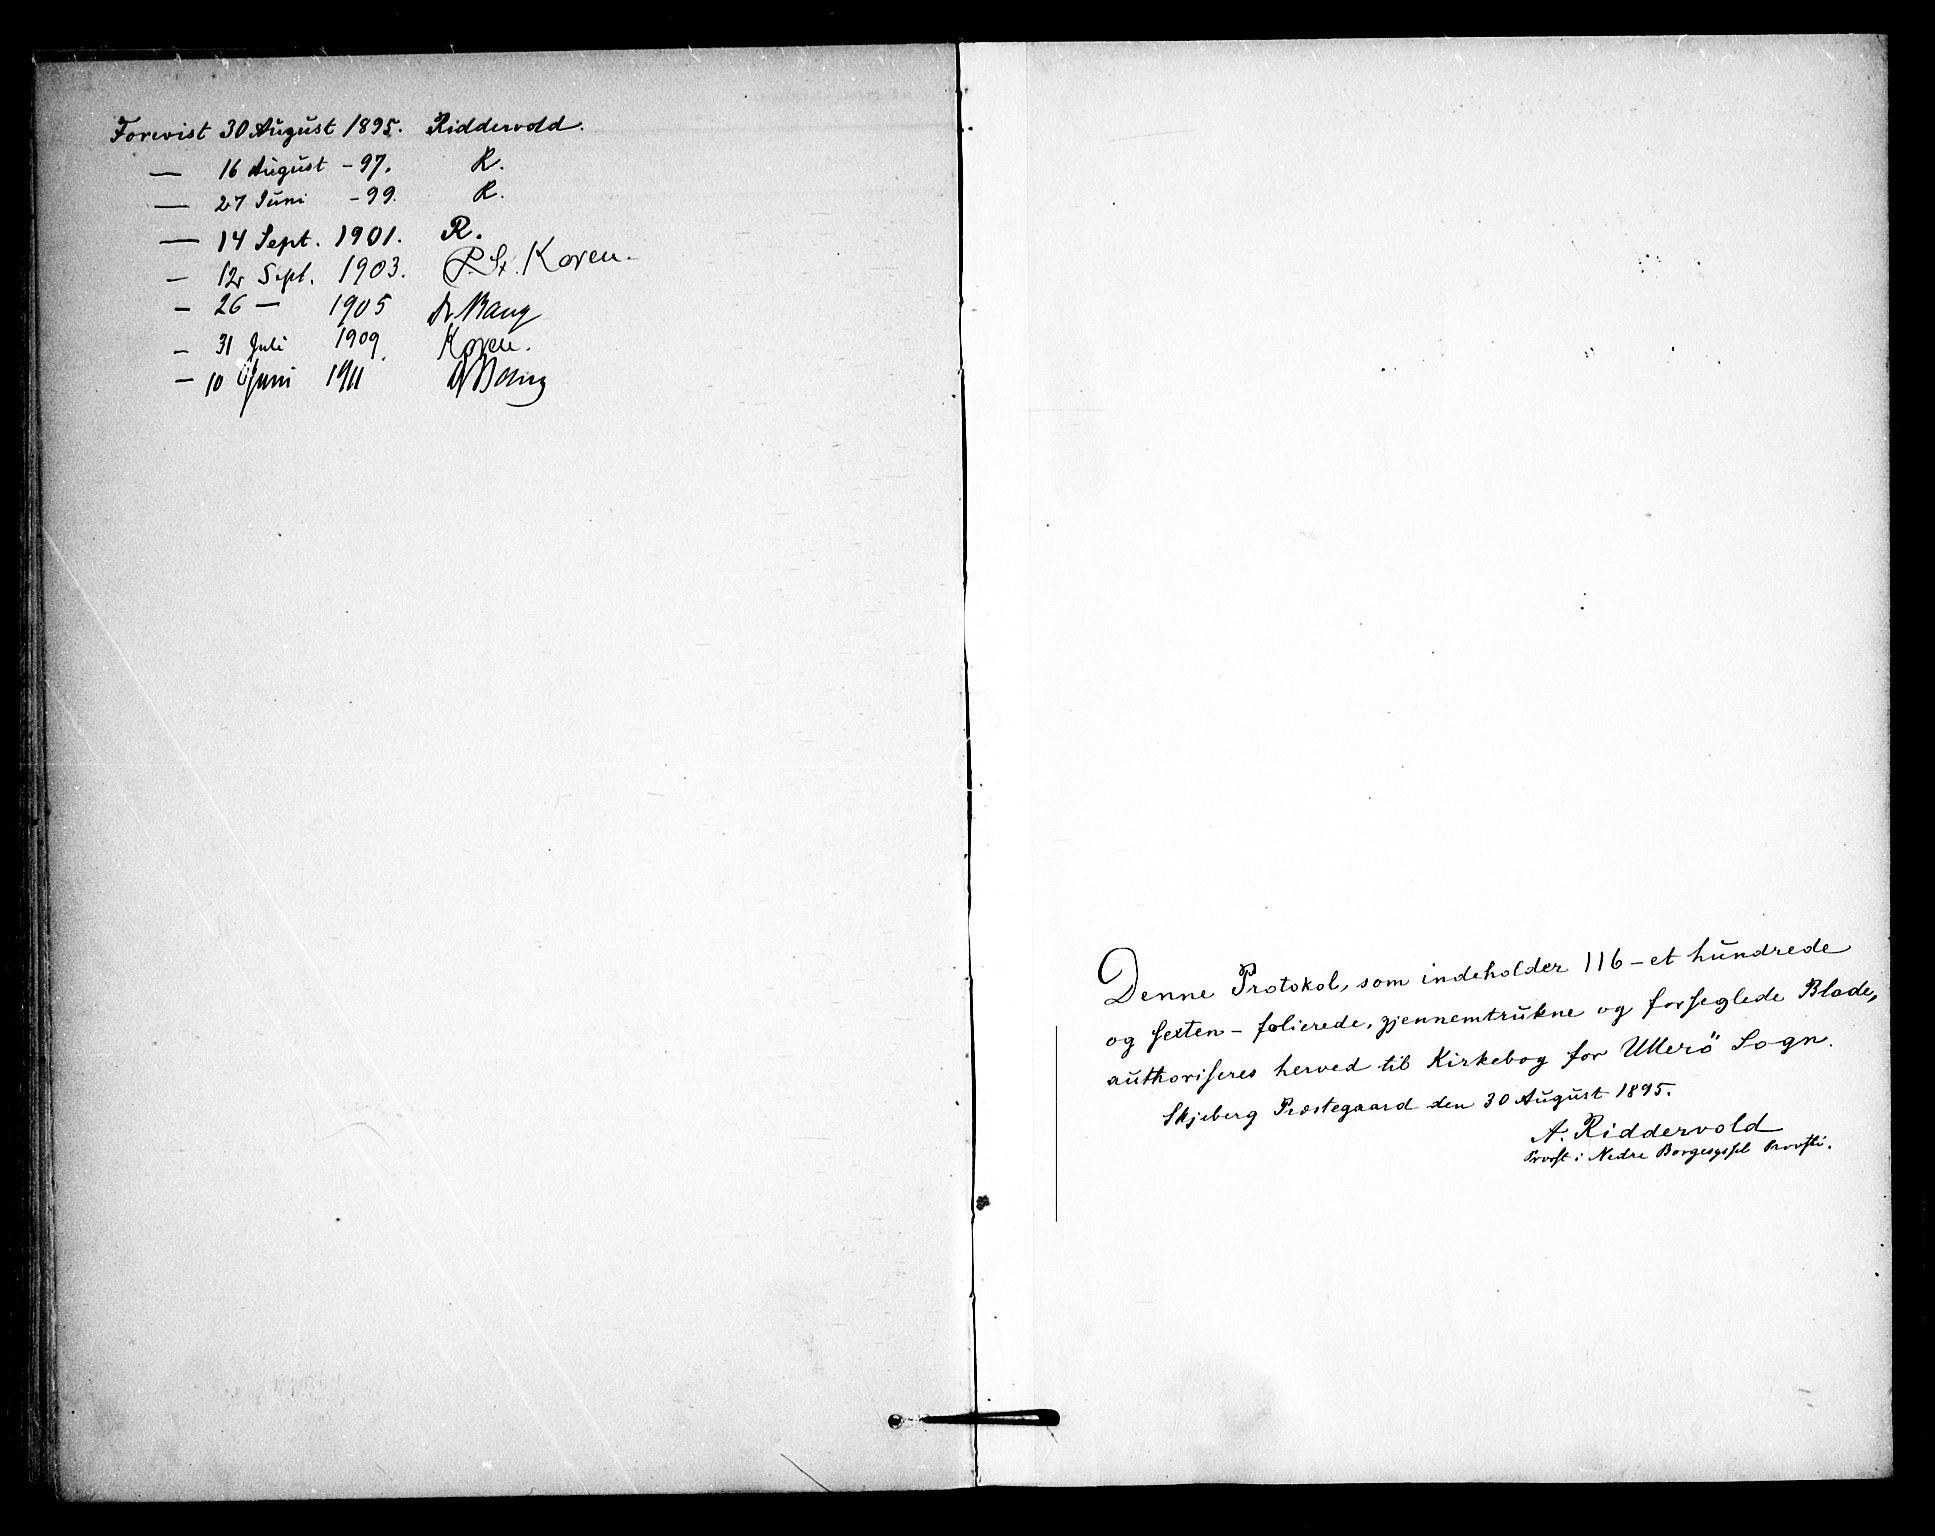 Forevist 30 August 1895. Riddervold.
— 16 August - 97. R.
— 27 Juni - 99. R.
— 14 Sept. 1901. R.
— 12 Sept. 1903. P. St. Koren.
— 26 — 1905 Bang
— 31 Juli 1909. Koren.
— 10 Juni 1911 Bang
Denne Protokol, som indeholder 116 - et hundrede
og sexten - folierede, gjennemtrukne og forseglede Blade,
authoriseres herved til Kirkebog for Ullerö Sogn.
Skjeberg Præstegaard den 30 August 1895.
A. Riddervold
Provst i Nedre Borgesyssel Provsti.